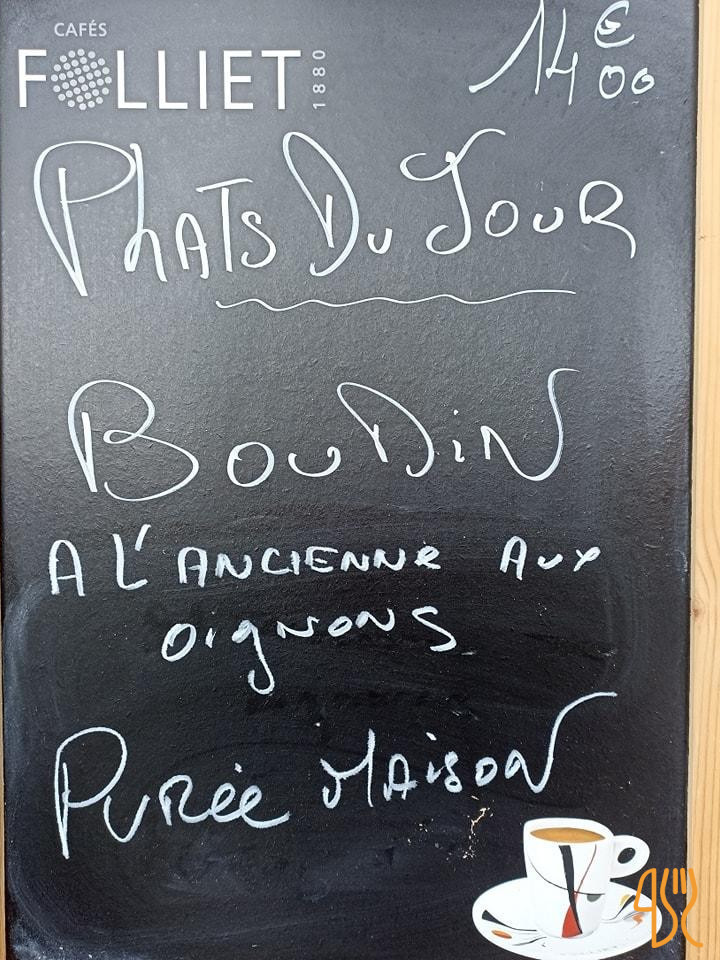 CAFÉS
FOLLIET
1880
14€00
PLATS DU JOUR
BOUDIN
A L'ANCIENNE AUX
OIGNONS
PURÉE MAISON
FOLLIET